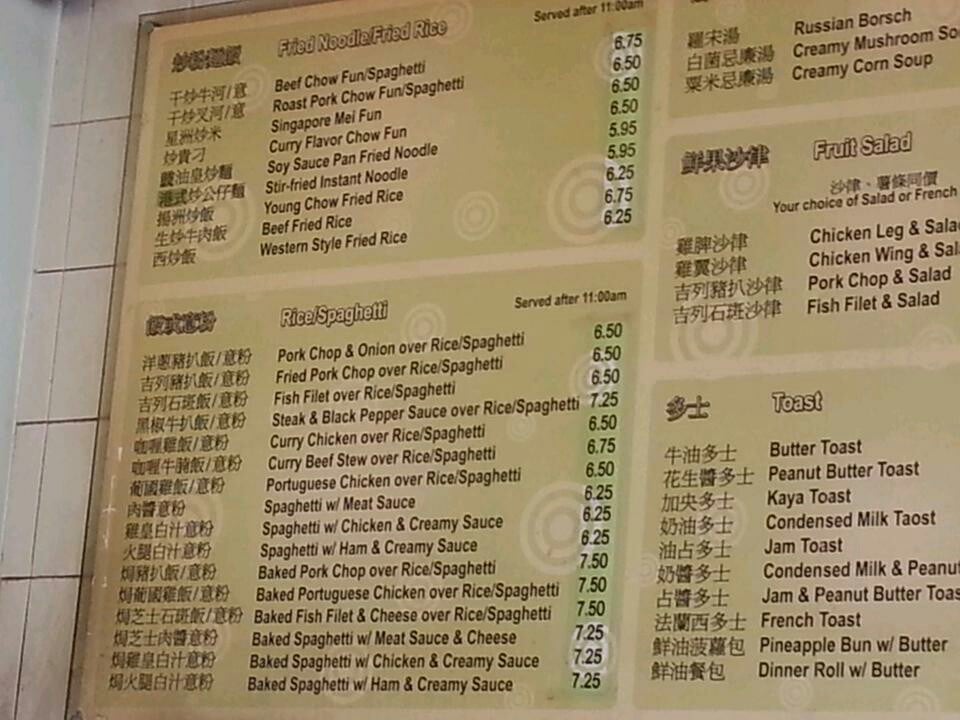 炒粉麵飯 Fried Noodle/Fried Rice Served after 11:00am
干炒牛河/意 Beef Chow Fun/Spaghetti 6.75
干炒叉河/意 Roast Pork Chow Fun/Spaghetti 6.50
星洲炒米 Singapore Mei Fun 6.50
炒貴刁 Curry Flavor Chow Fun 6.50
豉油皇炒麵 Soy Sauce Pan Fried Noodle 5.95
港式炒公仔麵 Stir-fried Instant Noodle 5.95
揚洲炒飯 Young Chow Fried Rice 6.25
生炒牛肉飯 Beef Fried Rice 6.75
西炒飯 Western Style Fried Rice 6.25
Rice/Spaghetti Served after 11:00am
洋蔥豬扒飯/意粉 Pork Chop & Onion over Rice/Spaghetti 6.50
吉列豬扒飯/意粉 Fried Pork Chop over Rice/Spaghetti 6.50
吉列石斑飯/意粉 Fish Filet over Rice/Spaghetti 6.50
黑椒牛扒飯/意粉 Steak & Black Pepper Sauce over Rice/Spaghetti 7.25
咖喱雞飯/意粉 Curry Chicken over Rice/Spaghetti 6.50
咖喱牛腩飯/意粉 Curry Beef Stew over Rice/Spaghetti 6.75
葡國雞飯/意粉 Portuguese Chicken over Rice/Spaghetti 6.50
肉醬意粉 Spaghetti w/ Meat Sauce 6.25
雞皇白汁意粉 Spaghetti w/ Chicken & Creamy Sauce 6.25
火腿白汁意粉 Spaghetti w/ Ham & Creamy Sauce 6.25
焗豬扒飯/意粉 Baked Pork Chop over Rice/Spaghetti 7.50
焗葡國雞飯/意粉 Baked Portuguese Chicken over Rice/Spaghetti 7.50
焗芝士石斑飯/意粉 Baked Fish Filet & Cheese over Rice/Spaghetti 7.50
焗芝士肉醬意粉 Baked Spaghetti w/ Meat Sauce & Cheese 7.25
焗雞皇白汁意粉 Baked Spaghetti w/ Chicken & Creamy Sauce 7.25
焗火腿白汁意粉 Baked Spaghetti w/ Ham & Creamy Sauce 7.25
羅宋湯 Russian Borsch
白菌忌廉湯 Creamy Mushroom So
粟米忌廉湯 Creamy Corn Soup
鮮果沙律 Fruit Salad
沙律、薯條同價
Your choice of Salad or French
雞脾沙律 Chicken Leg & Sala
雞翼沙律 Chicken Wing & Sal
吉列豬扒沙律 Pork Chop & Salad
吉列石斑沙律 Fish Filet & Salad
多士 Toast
牛油多士 Butter Toast
花生醬多士 Peanut Butter Toast
加央多士 Kaya Toast
奶油多士 Condensed Milk Taost
油占多士 Jam Toast
奶醬多士 Condensed Milk & Peanut
占醬多士 Jam & Peanut Butter Toas
法蘭西多士 French Toast
鮮油菠蘿包 Pineapple Bun w/ Butter
鮮油餐包 Dinner Roll w/ Butter